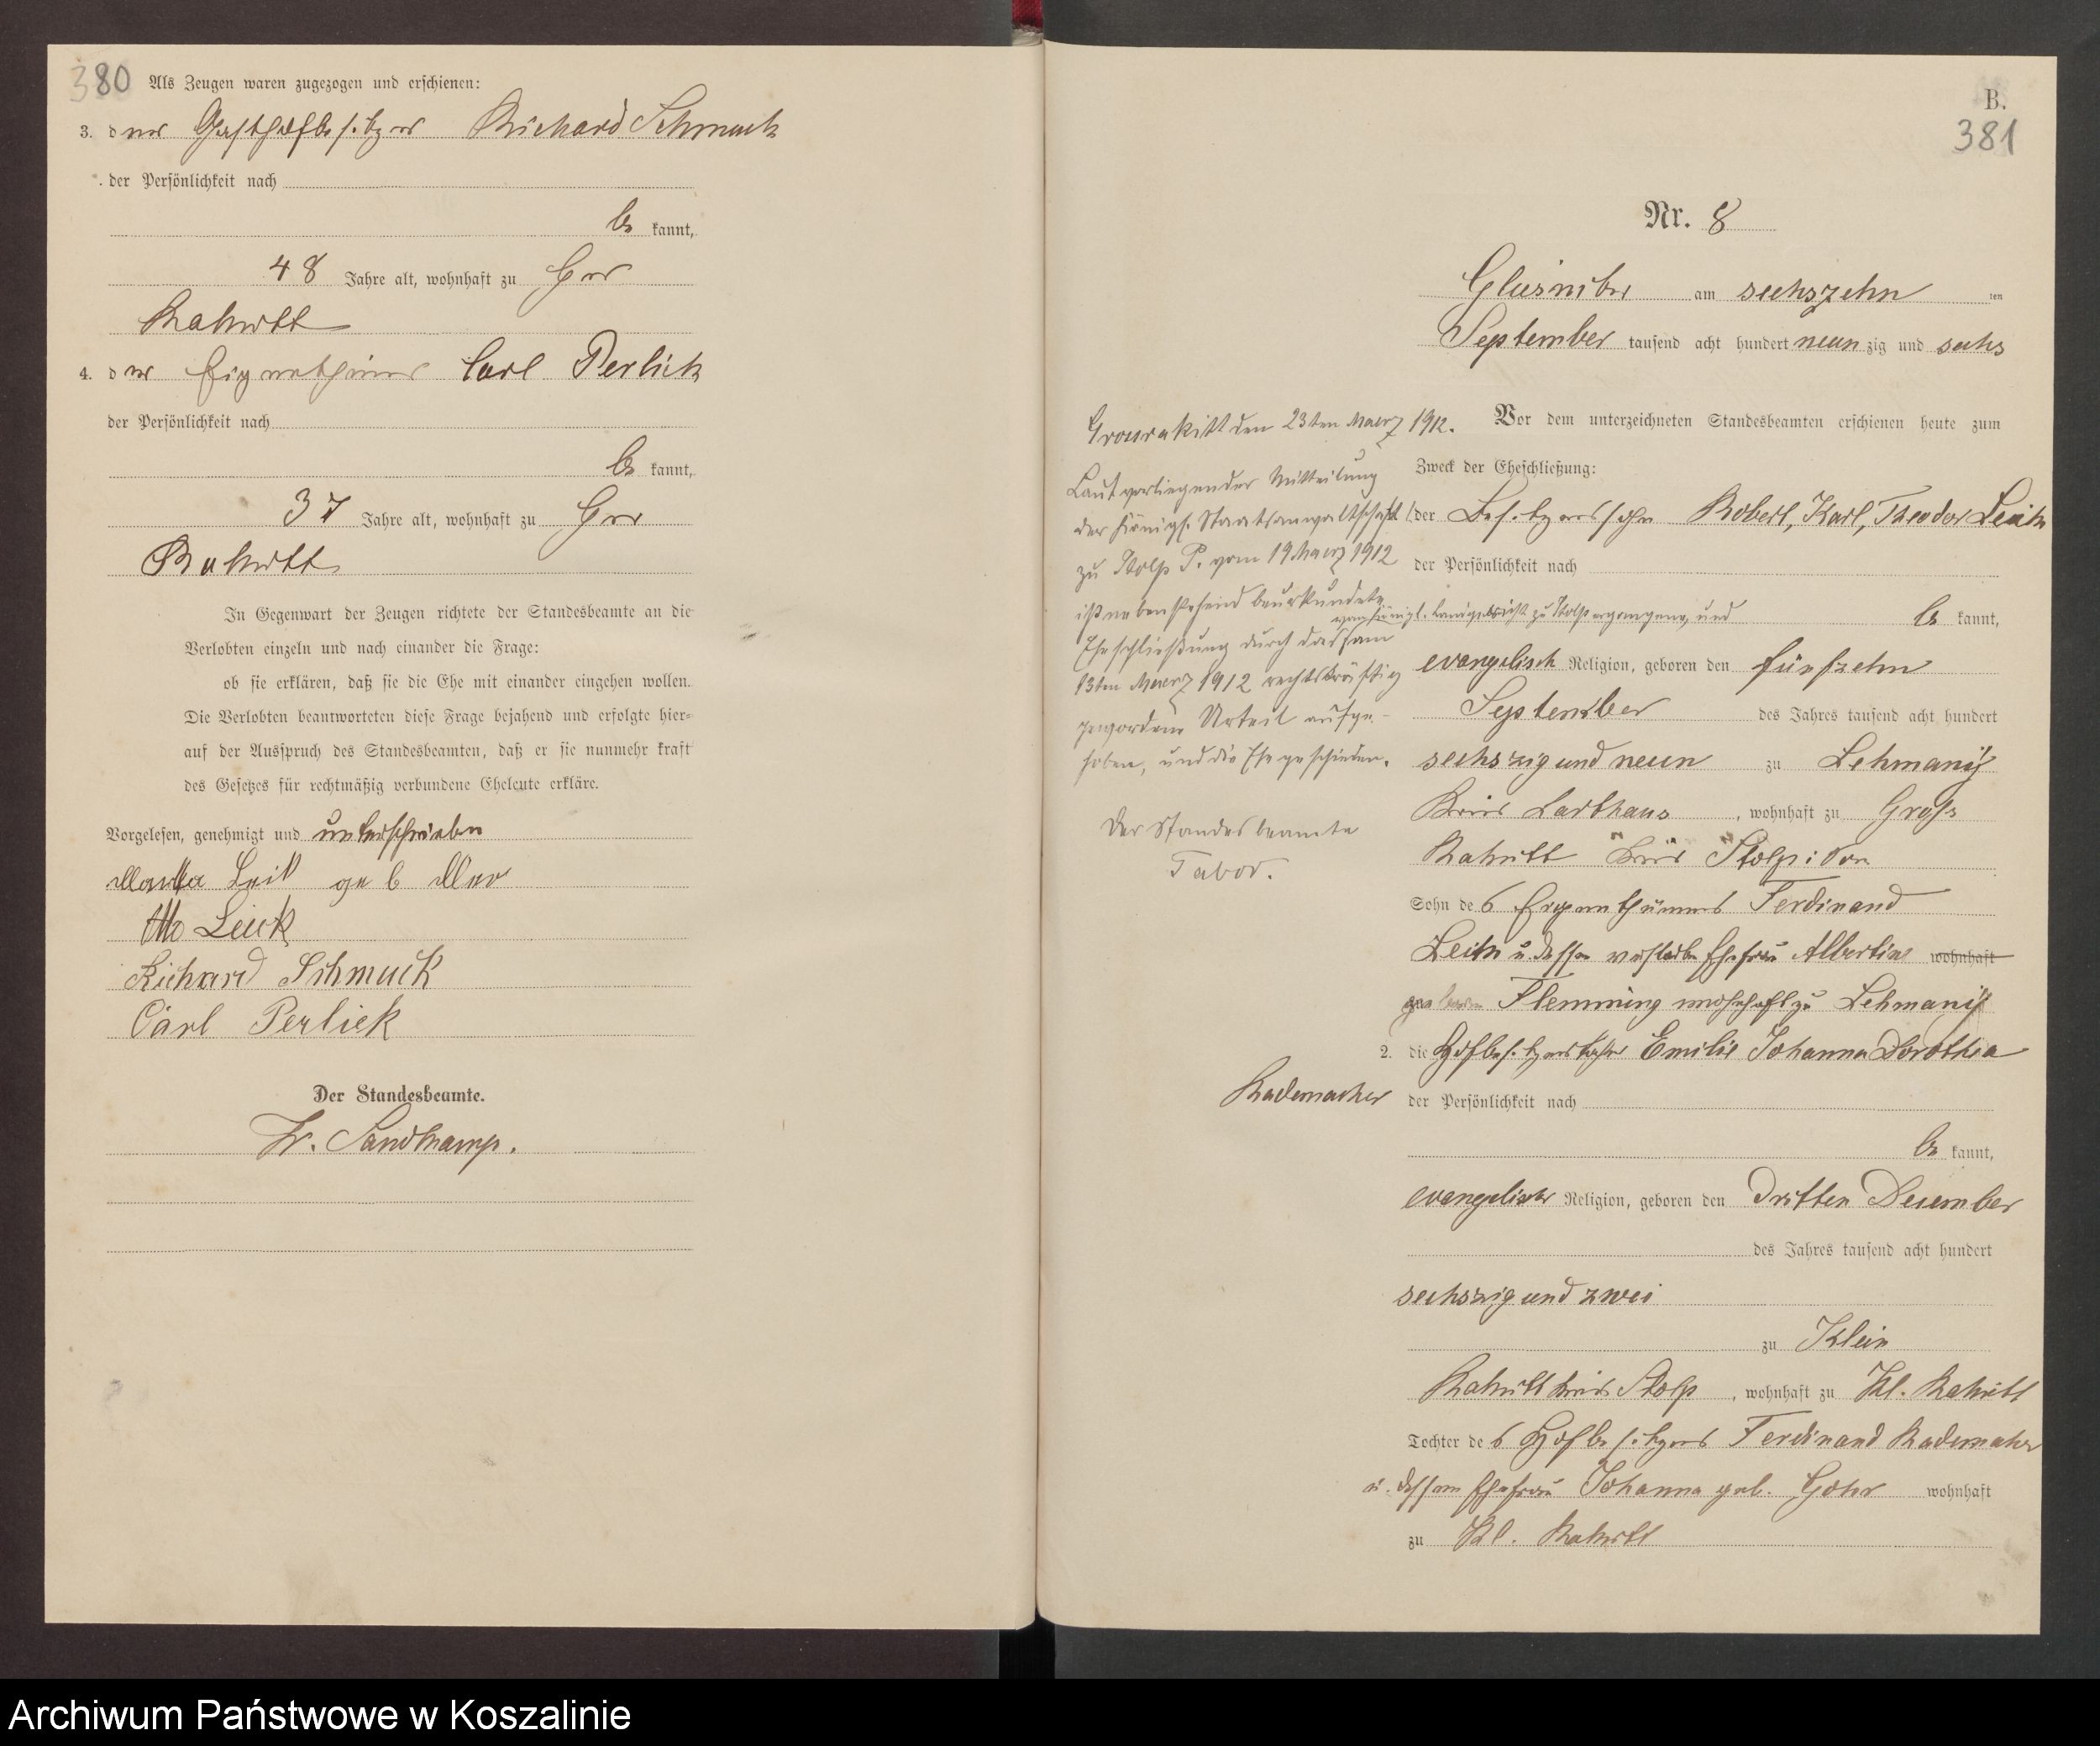 380 Als Zeugen waren zugezogen und erschienen:
3. der Gasthofbesitzer Richard Schmuck
der Persönlichkeit nach
be kannt,
48 Jahre alt, wohnhaft zu Gr
Rakitt
4. der Eigenthümer Carl Perlick
der Persönlichkeit nach
be kannt,
37 Jahre alt, wohnhaft zu Gr
Rakitt
In Gegenwart der Zeugen richtete der Standesbeamte an die
Verlobten einzeln und nach einander die Frage:
ob sie erklären, daß sie die Ehe mit einander eingehen wollen.
Die Verlobten beantworteten diese Frage bejahend und erfolgte hier-
auf der Ausspruch des Standesbeamten, daß er sie nunmehr kraft
des Gesetzes für rechtmäßig verbundene Eheleute erkläre.
Vorgelesen, genehmigt und unterschrieben
geb
Otto Leick
Richard Schmuck
Carl Perliek
Der Standesbeamte.
Sandkamp.
B.
381
Nr. 8
am sechszehn ten
September tausend acht hundert neun zig und sechs
Grossrakitt den 23ten Maerz 1912.
Laut vorliegender Mitteilung
der Königl. Staatsanwaltschaft
zu Stolp P. vom 19 Maerz 1912
ist nebenstehend beurkundete
Eheschließung durch das am
vom Königl. Landgericht zu Stolp ergangene, und
13ten Maerz 1912 rechtskräftig
gewordene Urteil aufge-
hoben, und die Ehe geschieden.
Der Standesbeamte
Tabor.
Vor dem unterzeichneten Standesbeamten erschienen heute zum
Zweck der Eheschließung:
1. der Besitzerssohn Robert, Karl, Theodor Leick
der Persönlichkeit nach
be kannt,
evangelisch Religion, geboren den fünfzehn
September des Jahres tausend acht hundert
sechszig und neun zu Lehmany
Kreis Carthaus, wohnhaft zu Groß
Rakitt Kreis Stolp i. Pom
Sohn des Eigenthümers Ferdinand
Leick u. dessen verstorbn Ehefrau Albertine wohnhaft
geboren Flemming wohnhaft zu Lehmany
2. die Hofbesitzerstochter Emilie Johanna Dorothea
Rademacher
der Persönlichkeit nach
be kannt,
evangelischer Religion, geboren den dritten Dezember
des Jahres tausend acht hundert
sechszig und zwei
zu Klein
Rakitt Kreis Stolp, wohnhaft zu Kl. Rakitt
Tochter des Hofbesitzers Ferdinand Rademacher
u. dessen Ehefrau Johanna geb. Gohr wohnhaft
zu Kl. Rakitt
Archiwum Państwowe w Koszalinie